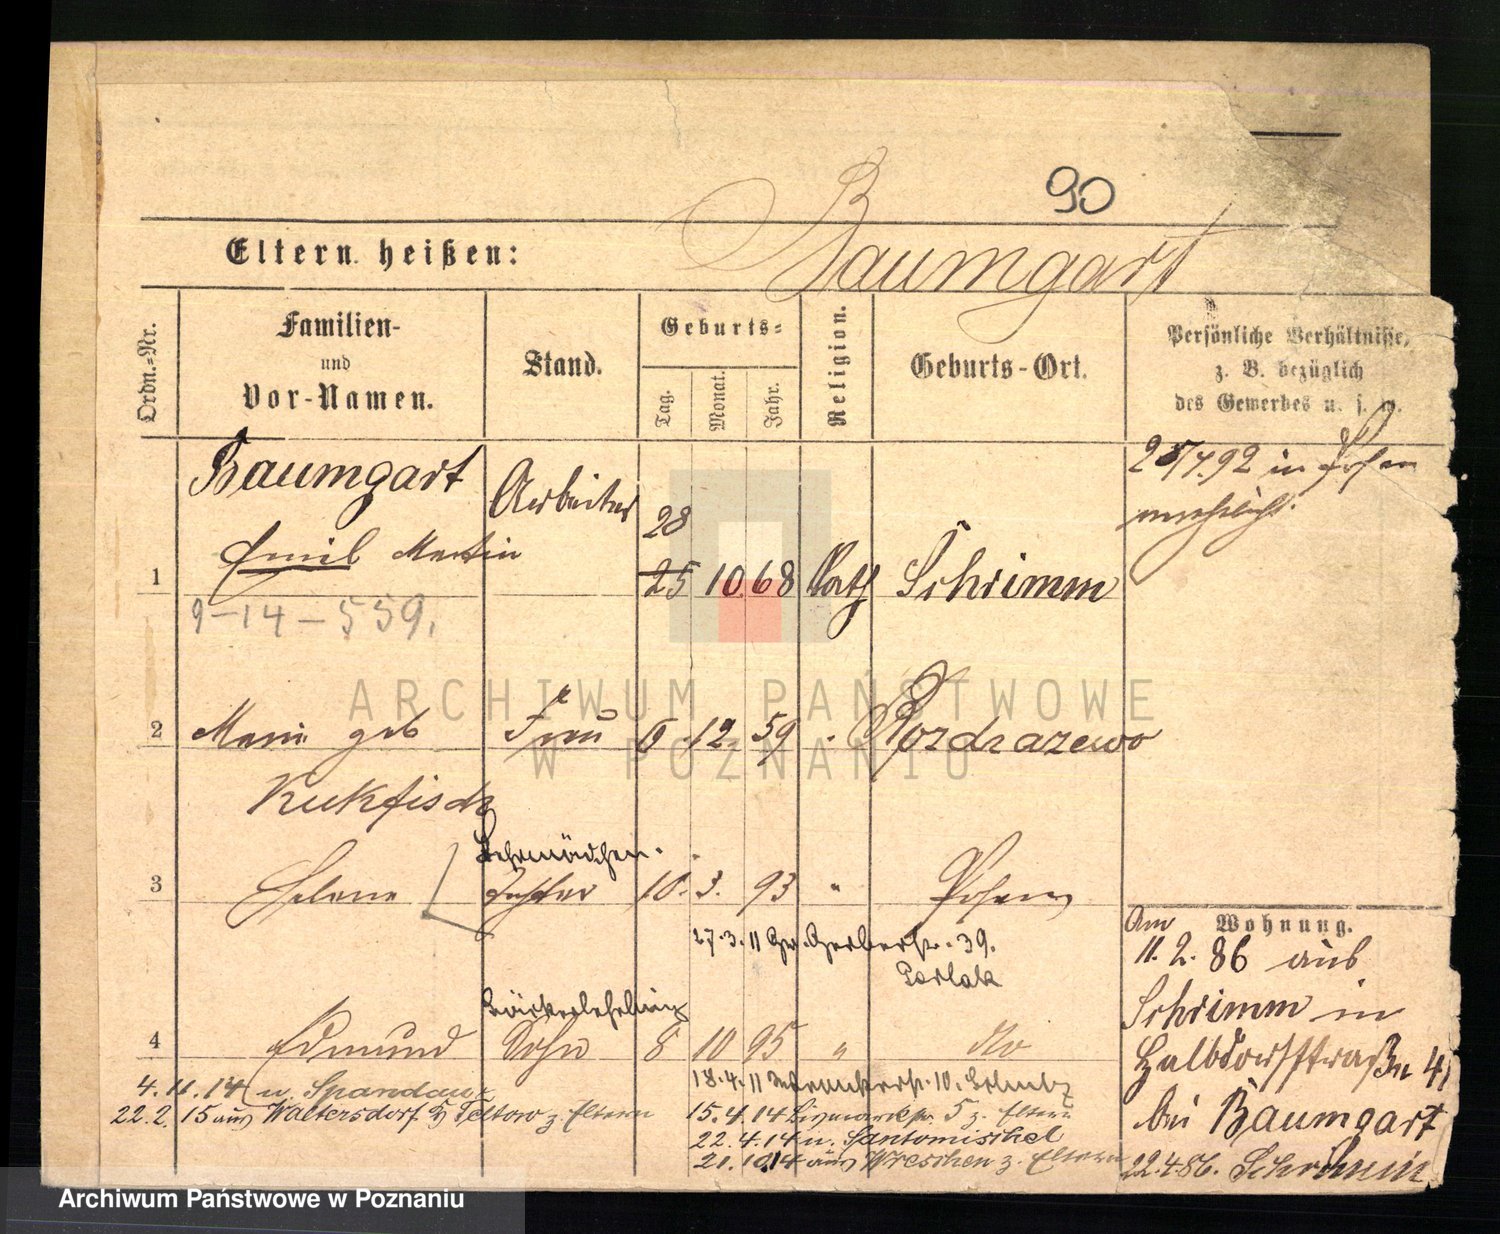 90
Eltern heißen:
Baumgart
Ordn.-Nr.
Familien-
und
Vor-Namen.
Stand.
Geburts-
Tag.
Monat.
Jahr.
Religion.
Geburts-Ort.
Persönliche Verhältnisse,
z. B. bezüglich
des Gewerbes u. s. w.
Baumgart
Arbeiter
28
1 Emil Martin 25 10. 68 Kath Schrimm
9-14-559.
7.92 in Posen
verehelicht.
2 Marie geb Frau 6 12. 59 " Rozdrazewo
Kukfisch
Lehrmädchen.
3 Helene Tochter 10. 3. 93 " Posen
27.3.11 Gr. Gerberstr. 39.
Bäckerlehrling
4 Edmund Sohn 8 10 95 " do
4.11.14 n. Spandau
22.2.15 aus Waltersdorf Teltow z. Eltern
18.4.11 10.
15.4.14 5 z. Eltern
22.4.14 n. Santomischel
21.10.14 aus Wreschen z. Eltern
Wohnung.
Am
11.2.86 aus
Schrimm in
Halbdorfstraße 4
bei Baumgart
22.4.86. Schrimm
ARCHIWUM PAŃSTWOWE
W POZNANIU
Archiwum Państwowe w Poznaniu